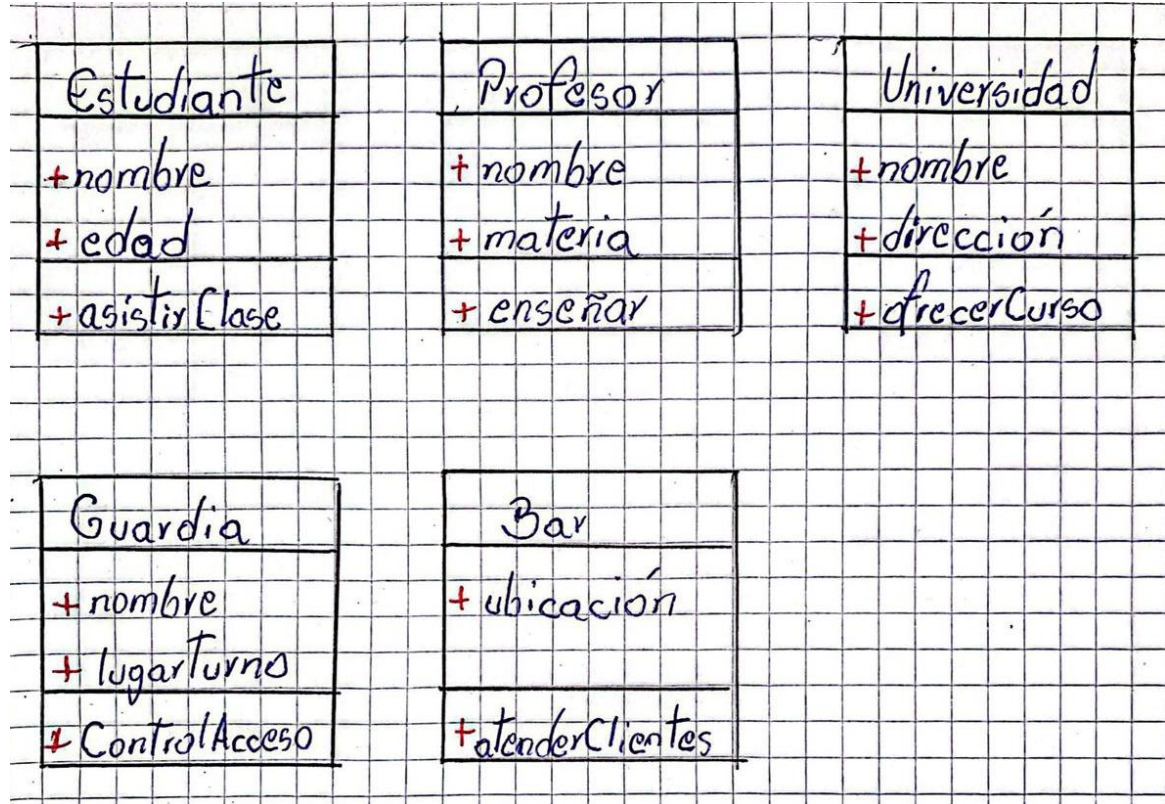 Estudiante
+nombre
+ edad
+asistirClase
Profesor
+ nombre
+ materia
+ enseñar
Universidad
+nombre
+dirección
+ofrecerCurso
Guardia
+ nombre
+ lugarTurno
+ ControlAcceso
Bar
+ ubicación
+atenderClientes